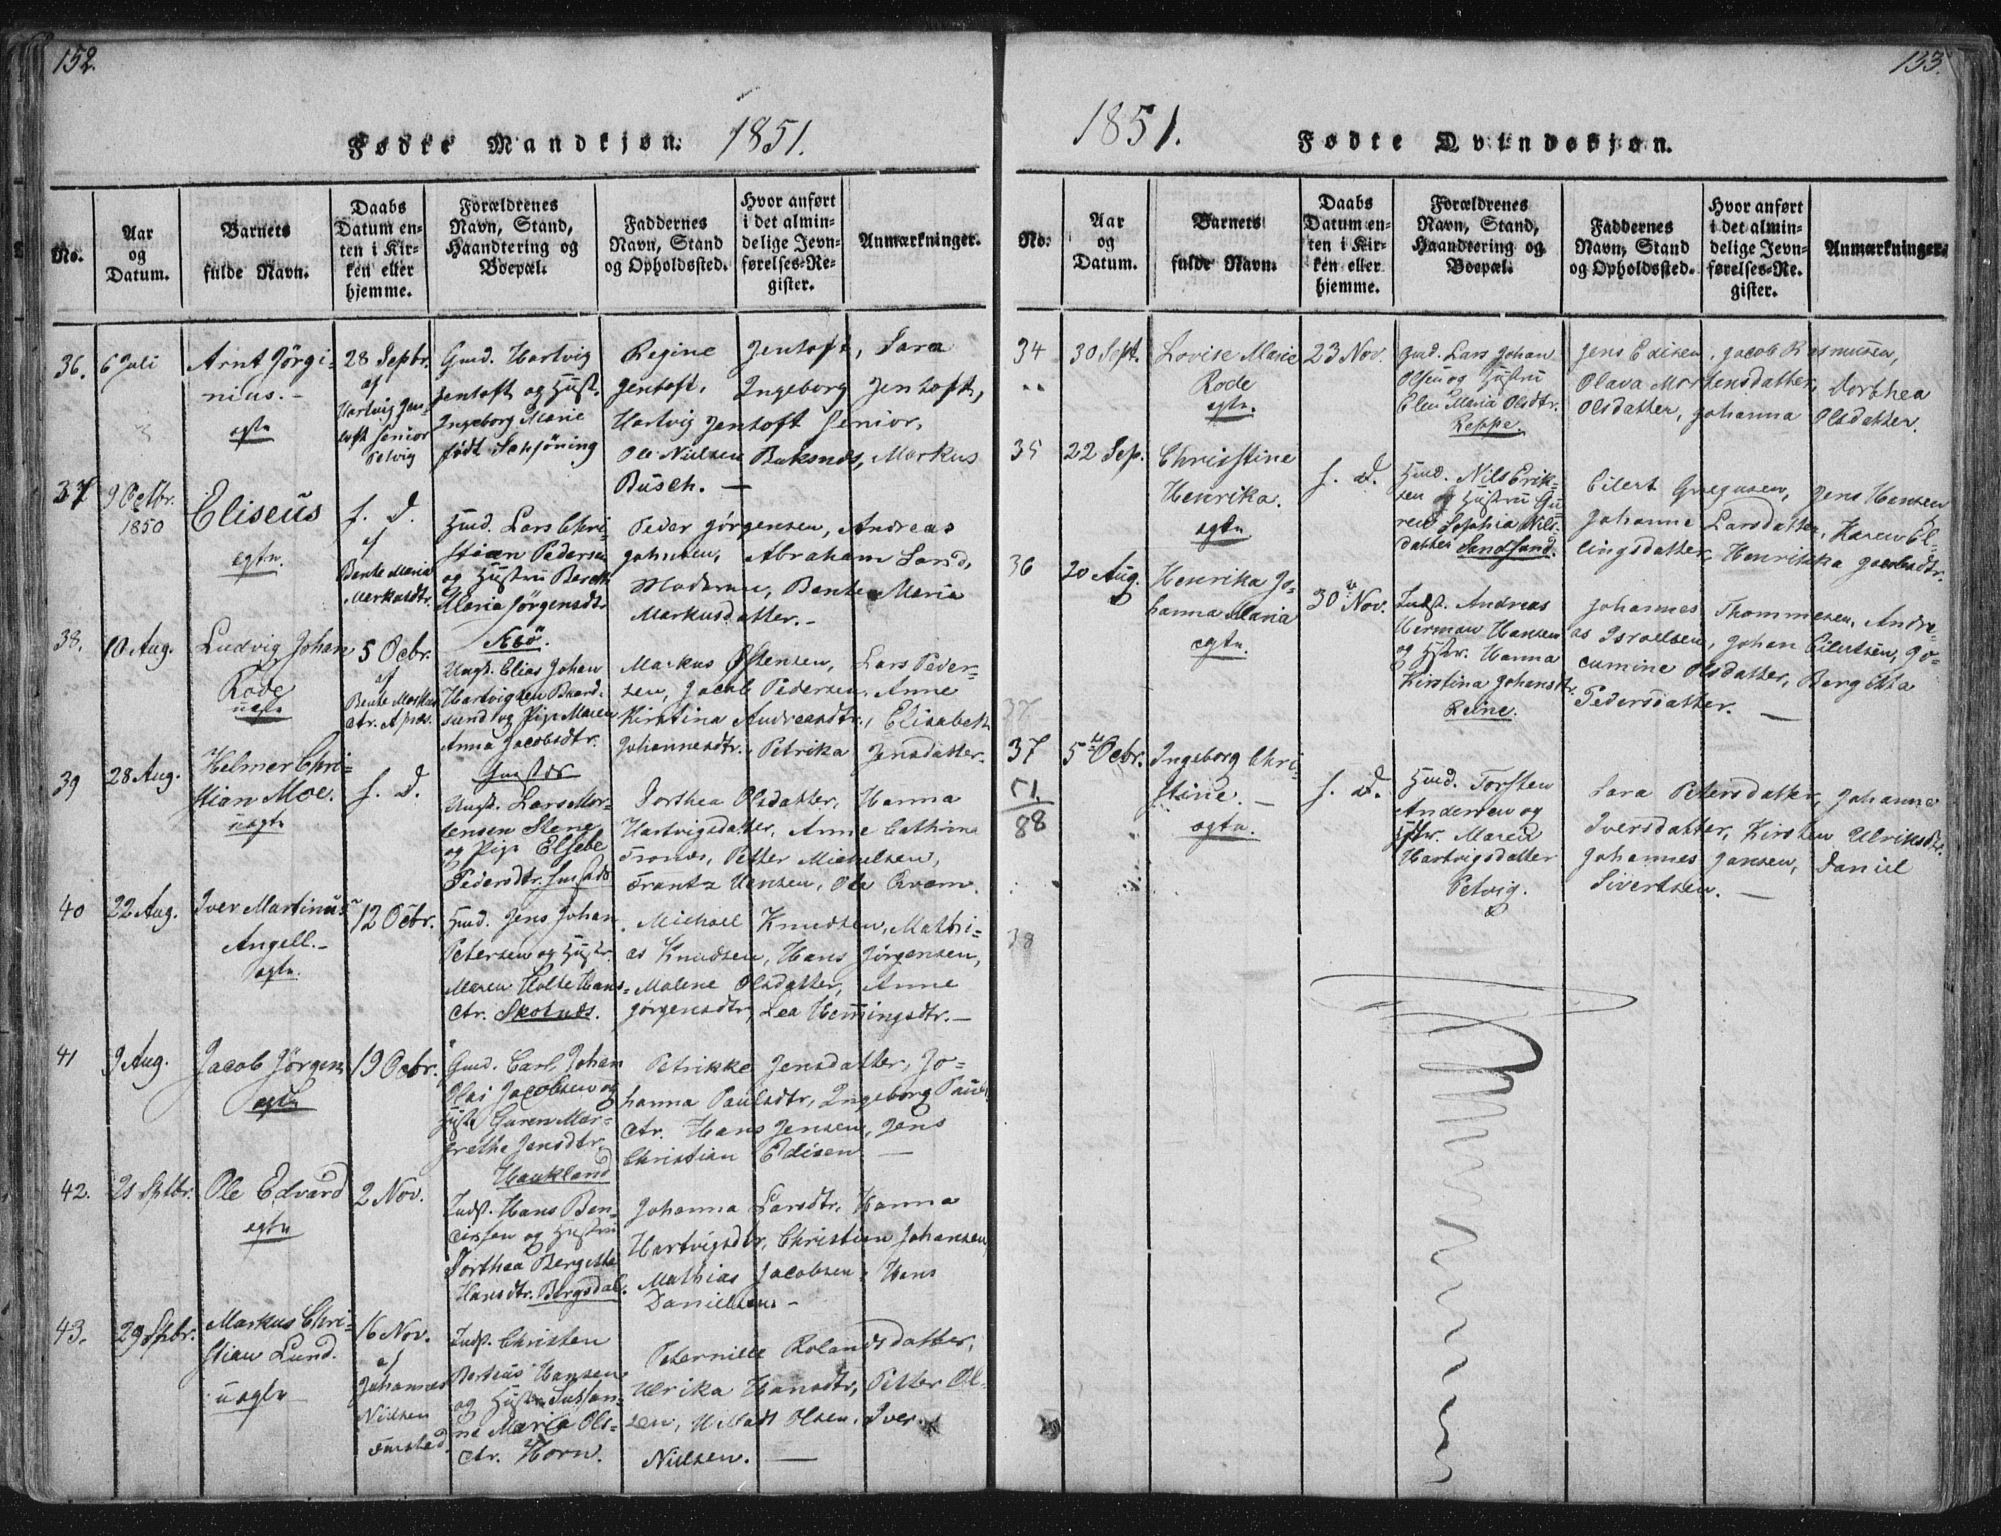 152.
Fødte Mandkjøn. 1851.
No.
Aar
og
Datum.
Barnets
fulde Navn.
Daabs
Datum en-
ten i Kir-
ken eller
hjemme.
Forældrenes
Navn, Stand,
Haandtering og
Boepæl.
Faddernes
Navn, Stand
og Opholdssted.
Hvor anført
i det almin-
delige Jevn-
førelses-Re-
gister.
Anmærkninger.
36.
6 Juli
Arnt Jörgi-
nius. -
egte
28 Sepbr.
af
Hartvig Jen-
toft senior
Petvig
Gmd. Hartvig
Jentoft og Hust.
Ingeborg Marie
født
Regine Jentoft, Sara
Jentoft, Ingeborg Jentoft,
Hartvig Jentoft Senior,
Ole Nielsen Buksnes, Markus
Busch. —
37
9 Octbr.
1850
Eliseus
egte.
f. D.
af
Bente Maria
Markusdtr.
Hmd. Lars Chri-
stian Pedersen
og Hustru Bereth
Maria Jörgensdtr
Peder Jörgensen, Andreas
Johnsen, Abraham Lund,
Moderen, Bente Maria
Markusdatter. -
38.
10 Aug.
Ludvig Johan
Rode
uegte
5 Ocbr.
af
Bente Markus
dtr.
Ungk. Elias Johan
Hartvigsen
og Pige Maren
Anna Jacobsdtr.
Markus Ostensen, Lars Peder-
sen, Jacob Pedersen, Anne
Kirstina Andreasdtr., Elisabeth
Johannesdtr., Petrika Jensdatter.
39
28 Aug.
Helmer Chri-
stian Moe.
uegte
f. D.
Ungk. Lars Mor-
tensen Stene
og Pige Elsebe
Pedersdtr.
Dorthea Olsdatter, Hanna
Hartvigsdatter, Anne Cathrine
Petter Michelsen,
Frantz Hensen, Ole Qvam.
40
22 Aug.
Iver Martinus
Angell. -
egte.
12 Ocbr.
Hmd. Jens Johan
Petersen og Hustr.
Maren Holte Hans-
dtr. Skotnes.
Michael Knudsen, Mathi-
as Knudsen, Hans Jørgensen,
Malene Olsdatter, Anne
Jörgensdtr, Lea Hemingsdtr. —
41
9 Aug.
Jacob Jörgen
egte
19 Ocbr.
Gmd. Carl Johan
Olai Jacobsen og
Hust. Karen Mar-
grethe Jensdtr.
Haukland
Petrikke Jensdatter, Jo-
hanna Paulsdtr, Ingeborg Pauls
dtr. Hans Jensen, Jens
Christian Edisen —
42.
21 Sptbr.
Ole Edvard
egte
2 Nov.
Indst. Hans Ben-
og Hustru
Dorthea Bergitte
Hansdtr. Bergsdal.
Johanna Larsdtr, Hanna
Hartvigsdtr, Christian Johansen,
Mathias Jacobsen, Hans
Danielsen. -
43.
29 Spbr.
Markus Chri-
stian Lund.
uegte
16 Nov.
af
Johannes
Nielsen
Indst. Christen
Berteus Hansen
og Hustr. Sussan-
ne Maria Ols-
dtr. Horn.
Peternille Rolandsdatter,
Ulrika Hansdtr, Petter Ol-
sen, Olsen, Iver
Nielsen. —
133.
1851. Fødte Qvindekjøn.
No.
Aar
og
Datum.
Barnets
fulde Navn.
Daabs
Datum en-
ten i Kir-
ken eller
hjemme.
Forældrenes
Navn, Stand,
Haandtering og
Boepæl.
Faddernes
Navn, Stand
og Opholdssted.
Hvor anført
i det almin-
delige Jevn-
førelses-Re-
gister.
Anmærkninger.
34
30 Sept.
Lovise Marie
Rode
egte.
23 Nov.
Gmd. Lars Johan
Olsen og Hustru
Elen Maria Olsdtr.
Leppe.
Jens Edisen, Jacob Rasmusen,
Olava Mortensdatter, Dorthea
Olsdatter, Johanna Olsdatter.
35
22 Sep.
Christine
Henrika.
egte
f. D.
Hmd. Nils Erik-
sen og Hustru Gu-
ren Sophia Nils-
datter Sandsund.
Eilert Gregusen, Jens Hansen
Johanna Larsdatter, Karen El-
lingsdatter, Henrikka Jacobsdtr.
36
20 Aug.
Henrika Jo-
hanna Maria
egte.
30te Nov.
Indst. Andreas
Herman Hansen
og Hustr. Hanna
Kirstina Johansdtr.
Leine.
Johannes Thommesen, Andre-
as Israelsen, Johan Eilertsen, Jo-
cumine Olsdatter, Bergitta
Pedersdatter. —
37
37
51
88
5te Ocbr.
Ingeborg Chri-
stine. —
egte.
f. D.
Hmd. Torsten
Andersen og
Hstr. Maren
Hartvigsdatter
Petvig.
Sara Petersdatter, Johanne
Iversdatter, Kirsten Ulriksdtr.
Johannes Jansen, Daniel
Sivertsen. —
38